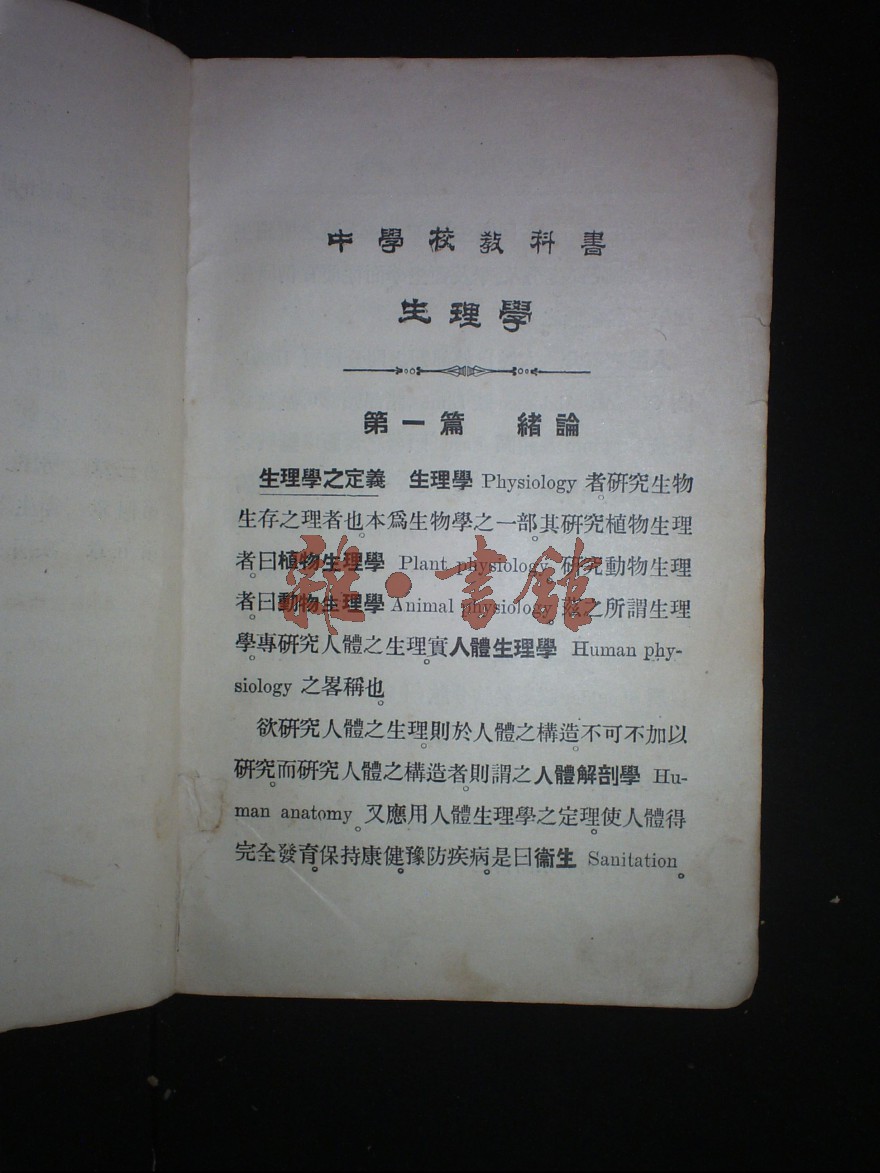 中學校教科書
生理學
第一篇 緒論
生理學之定義 生理學 Physiology 者。研究生物
生存之理者也。本爲生物學之一部。其研究植物生理
者。曰植物生理學 Plant physiology。研究動物生理
者。曰動物生理學 Animal physiology。茲之所謂生理
學。專研究人體之生理。實人體生理學 Human phy-
siology 之畧稱也。
欲研究人體之生理。則於人體之構造。不可不加以
研究。而研究人體之構造者。則謂之人體解剖學 Hu-
man anatomy。又應用人體生理學之定理。使人體得
完全發育。保持康健。豫防疾病。是曰衞生 Sanitation。
雜·書館